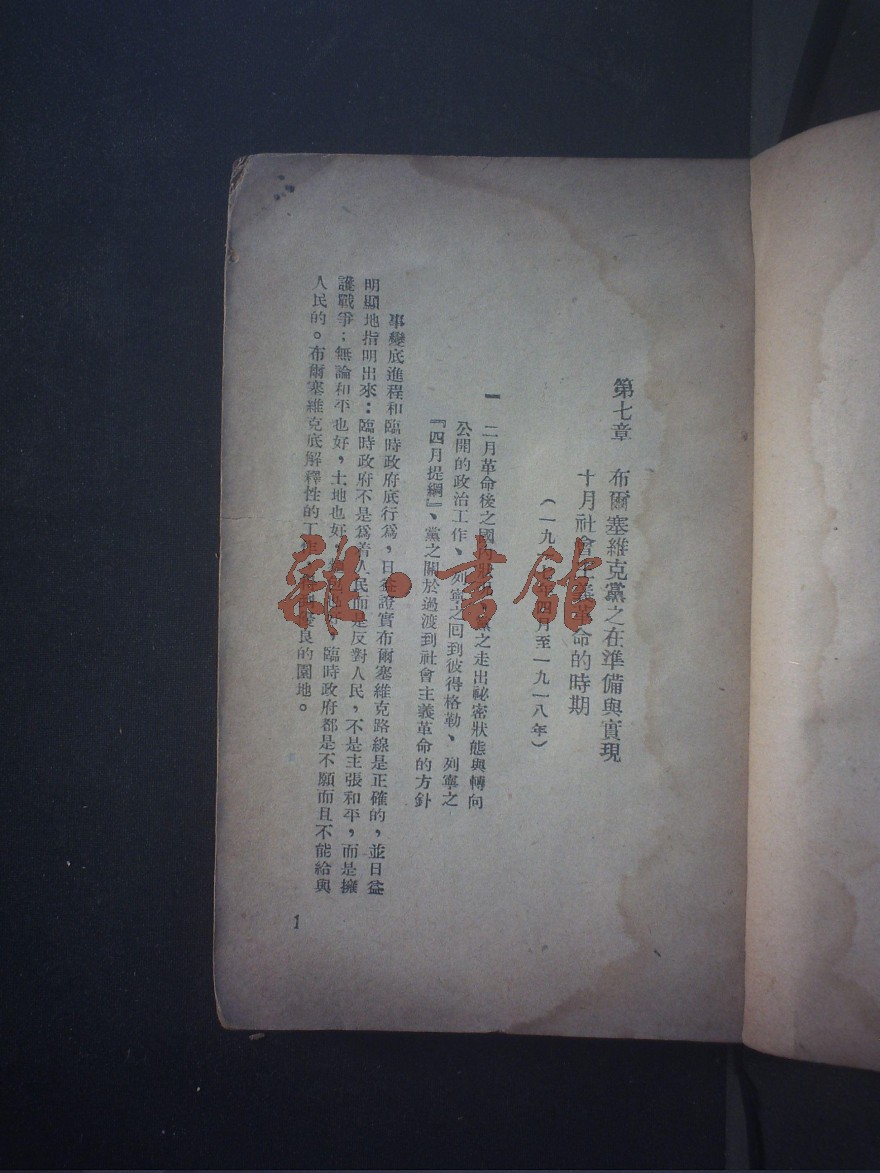 第七章 布爾塞維克黨之在準備與實現
十月社會主義革命的時期
（一九一七年四月至一九一八年）
一 二月革命後之國內狀 之走出祕密狀態與轉向
公開的政治工作、列寧之回到彼得格勒、列寧之
『四月提綱』、黨之關於過渡到社會主義革命的方針
事變底進程和臨時政府底行爲，日益證實布爾塞維克路線是正確的，並日益
明顯地指明出來：臨時政府不是爲着人民而是反對人民，不是主張和平，而是擁
護戰爭；無論和平也好，土地也好， 臨時政府都是不願而且不能給與
人民的。布爾塞維克底解釋性的工作 良的園地。
1
雜·書館